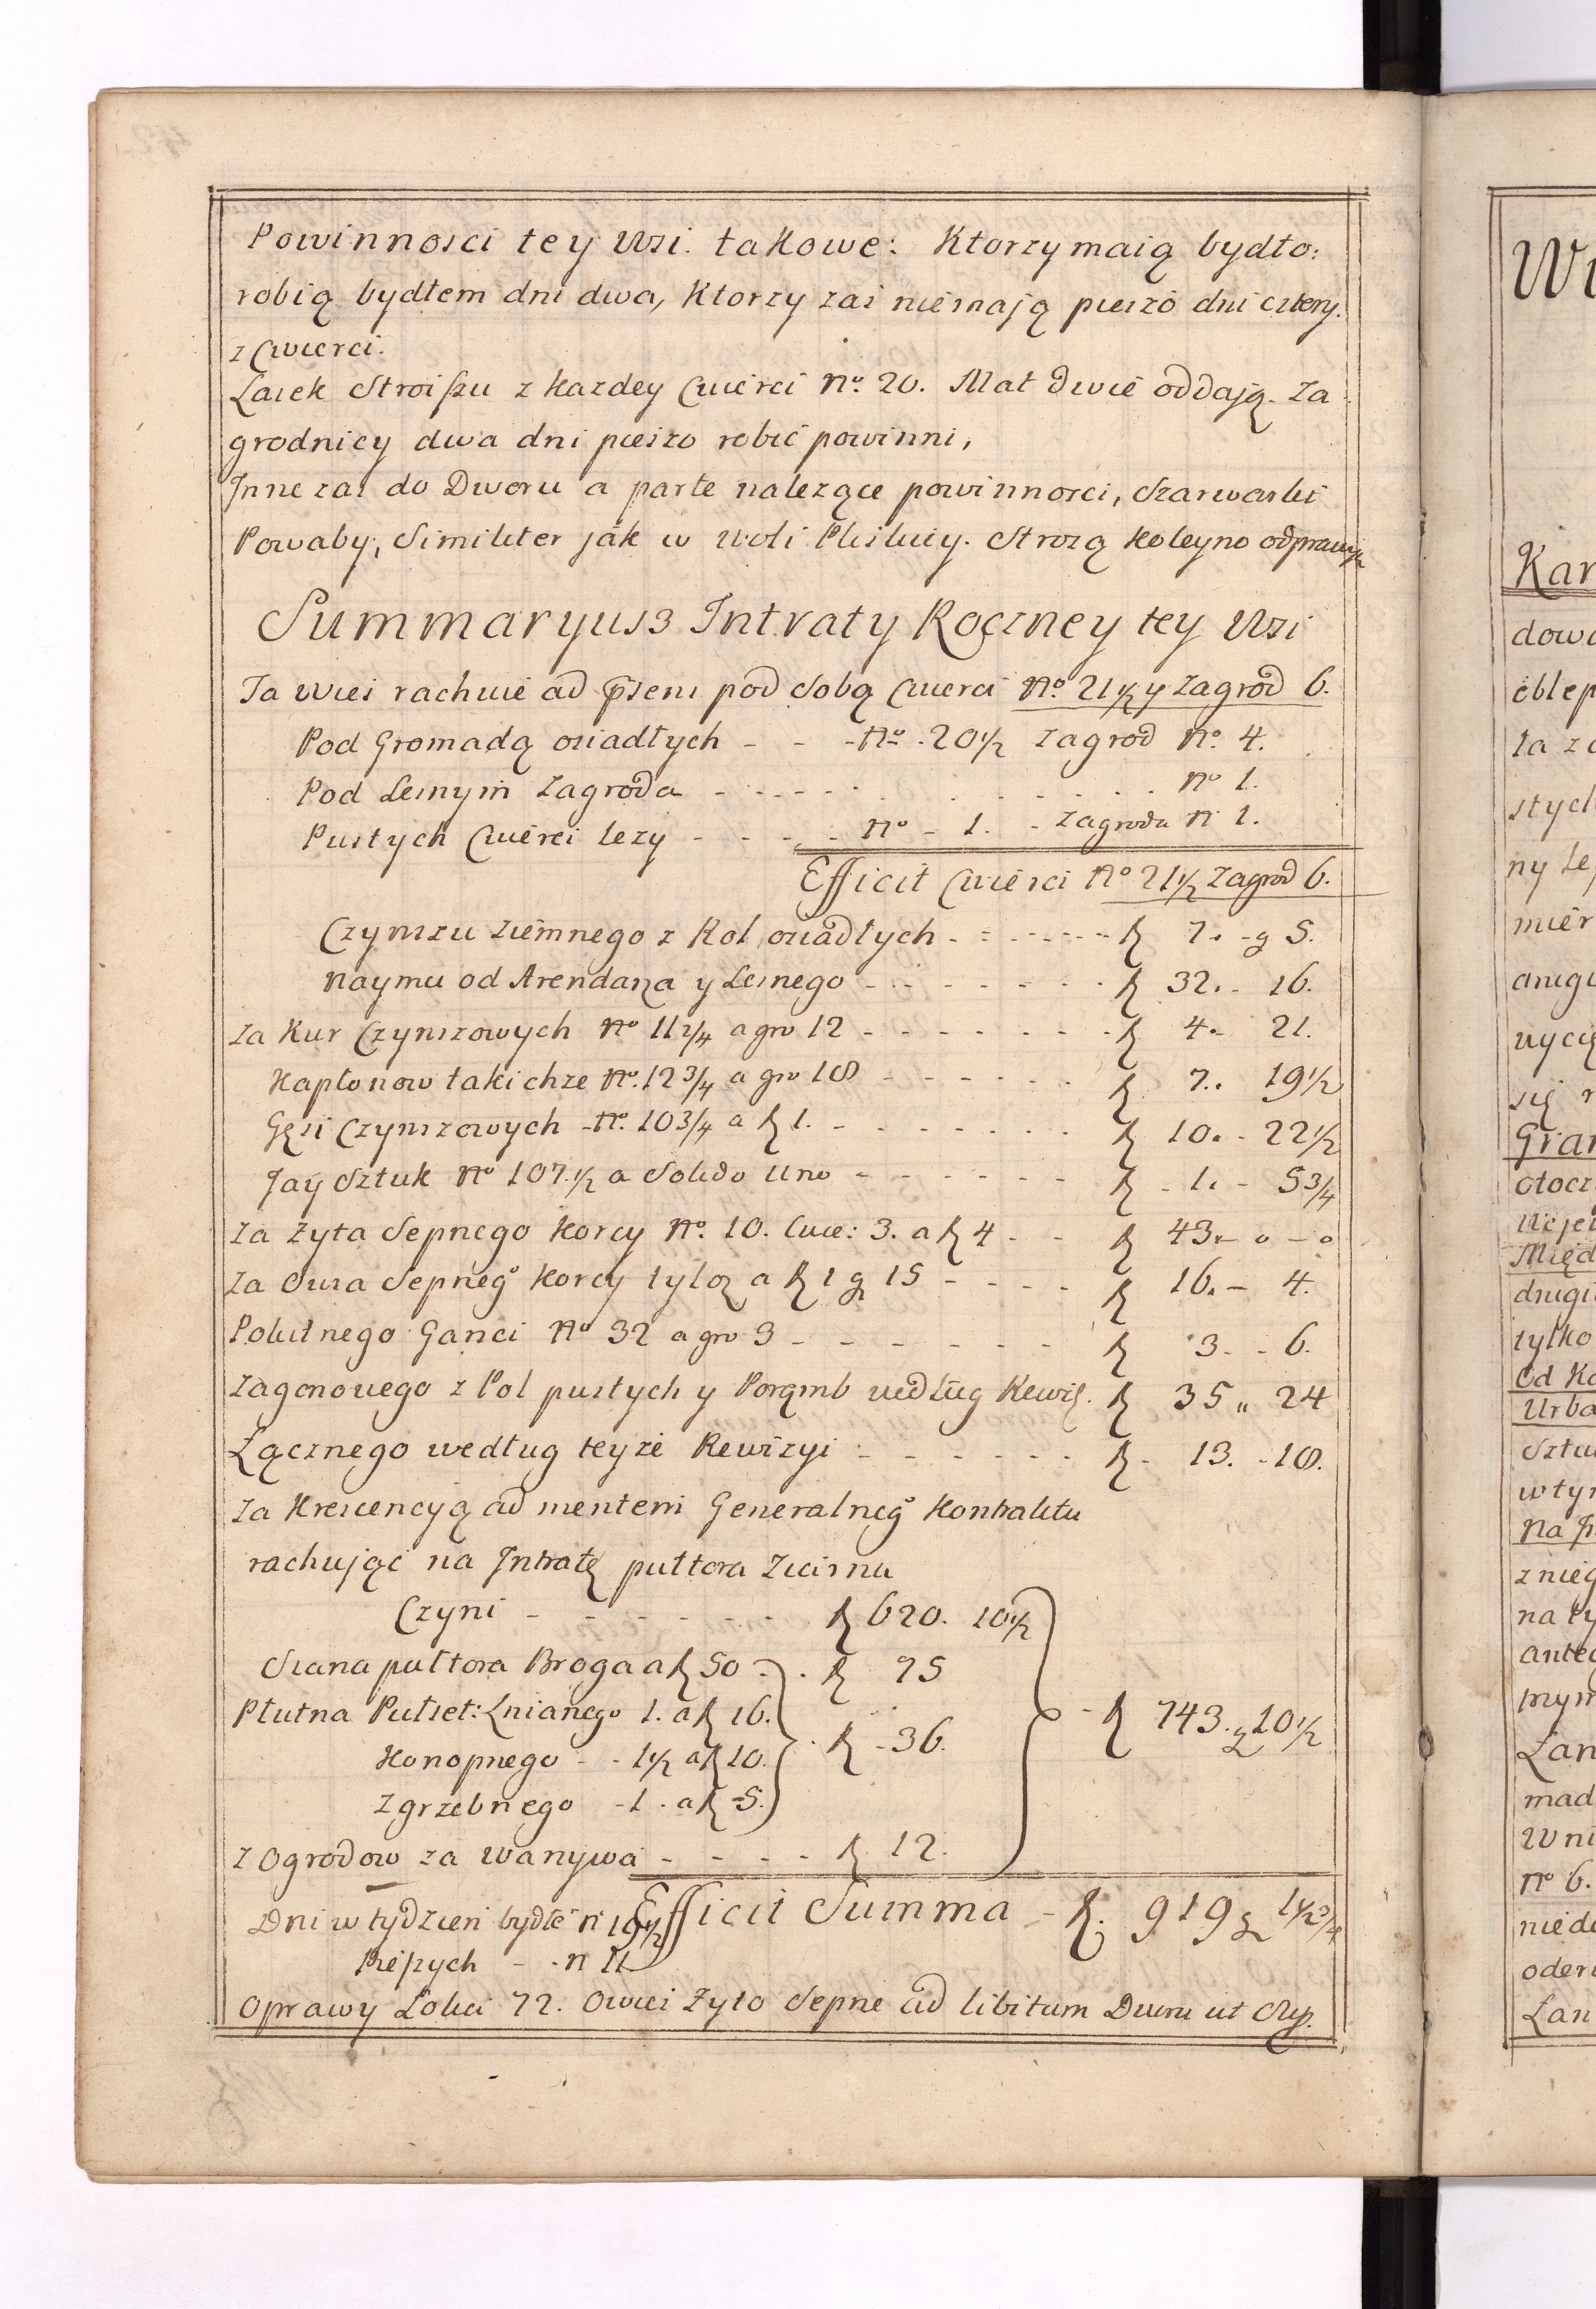 Powinnosci tey Wsi. takowe: Ktorzy maią bydło:
robią bydłem dni dwa, Ktorzy zaś niemają pieszo dni cztery.
z Cwierci.
Lasek Stroiszu z kazdey Cwierci No. 20. Mat dwie oddają. Za
grodnicy dwa dni pieszo robić powinni,
Inne zaś do Dworu a parte należące powinnosci, Szarwarki
Powaby, Similiter ják w Woli Strożą koleyno odprawują
Summaryusz Intraty Roczney tey Wsi
Ta Wieś rachuie ad pñsens pod Sobą Cwierci No. 21 1/2 y Zagrod 6.
Pod Gromadą osiadłych - - - No. 20 1/2 Zagrod No. 4.
Pod Lesnym Zagroda - - - - - No 1.
Pustych Cwierci leży - - - - - No - 1. - Zagroda N 1.
Efficit Cwierci No 21 1/2 Zagrod 6.
Czynszu ziemnego z Rol osiadłych - - - - - - - f 7. - g 5.
Naymu od Arendarza y Lesnego - - - - - - - f 32. - 16.
Za Kur Czynszowych No 11 3/4 a gro 12 - - - - - - - f 4. - 21.
Kapłonow takichze No. 12 3/4 a gro 18 - - - - - - f 7. 19 1/2
Gęsi Czynszowych - No. 10 3/4 a f 1. - - - - - - - - f 10. - 22 1/2
Jaÿ Sztuk No 107. 1/2 a Solido Uno - - - - - - f - 1. - 5 3/4
Za Żyta Sepnego Korcy No. 10. Cwie: 3. a f 4 - - f 43. - 0 - 0
Za Owsa Sepnego Korcy tyloż a f 1 g 15 - - - - f 16. - 4.
No 32 a gro 3 - - - - - - f 3. - 6.
Zagonowego z Pol pustych y Porąmb według Rewiz. f 35 „ 24
Łącznego według teyże Rewizyi - - - - - - f - 13. - 18.
Za Krescencyą ad mentem Generalnego Kontraktu
rachując na Intratę pułtora Ziarna
Czyni - - - - - - f 620. 10 1/2
Siana pułtora Broga a f 50 - . f 75
Płutna Pułset: Lnianego 1. a f 16.
Konopnego - - 1 1/2 a f 10. f - 36. - f 743. g 10 1/2
Zgrzebnego - 1. a f - 5.
Z Ogrodow za Wanywa - - - - f 12.
Efficit Summa - f. 919 g 1 1/2 3/4
Dni w tydzien bydłe n 19 1/2
Pieszych - - n 11
Oprawy Łokci 72. Owies Żyto Sepne ad libitum Dworu ut